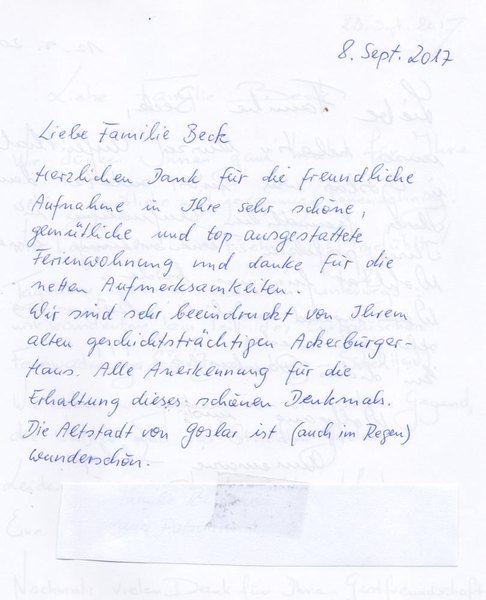 8. Sept. 2017
Liebe Familie Beck
Herzlichen Dank für die freundliche
Aufnahme in Ihre sehr schöne,
gemütliche und top ausgestattete
Ferienwohnung und danke für die
netten Aufmerksamkeiten.
Wir sind sehr beeindruckt von Ihrem
alten geschichtsträchtigen Ackerbürger-
Haus. Alle Anerkennung für die
Erhaltung dieses schönen Denkmals.
Die Altstadt von Goslar ist (auch im Regen)
wunderschön.